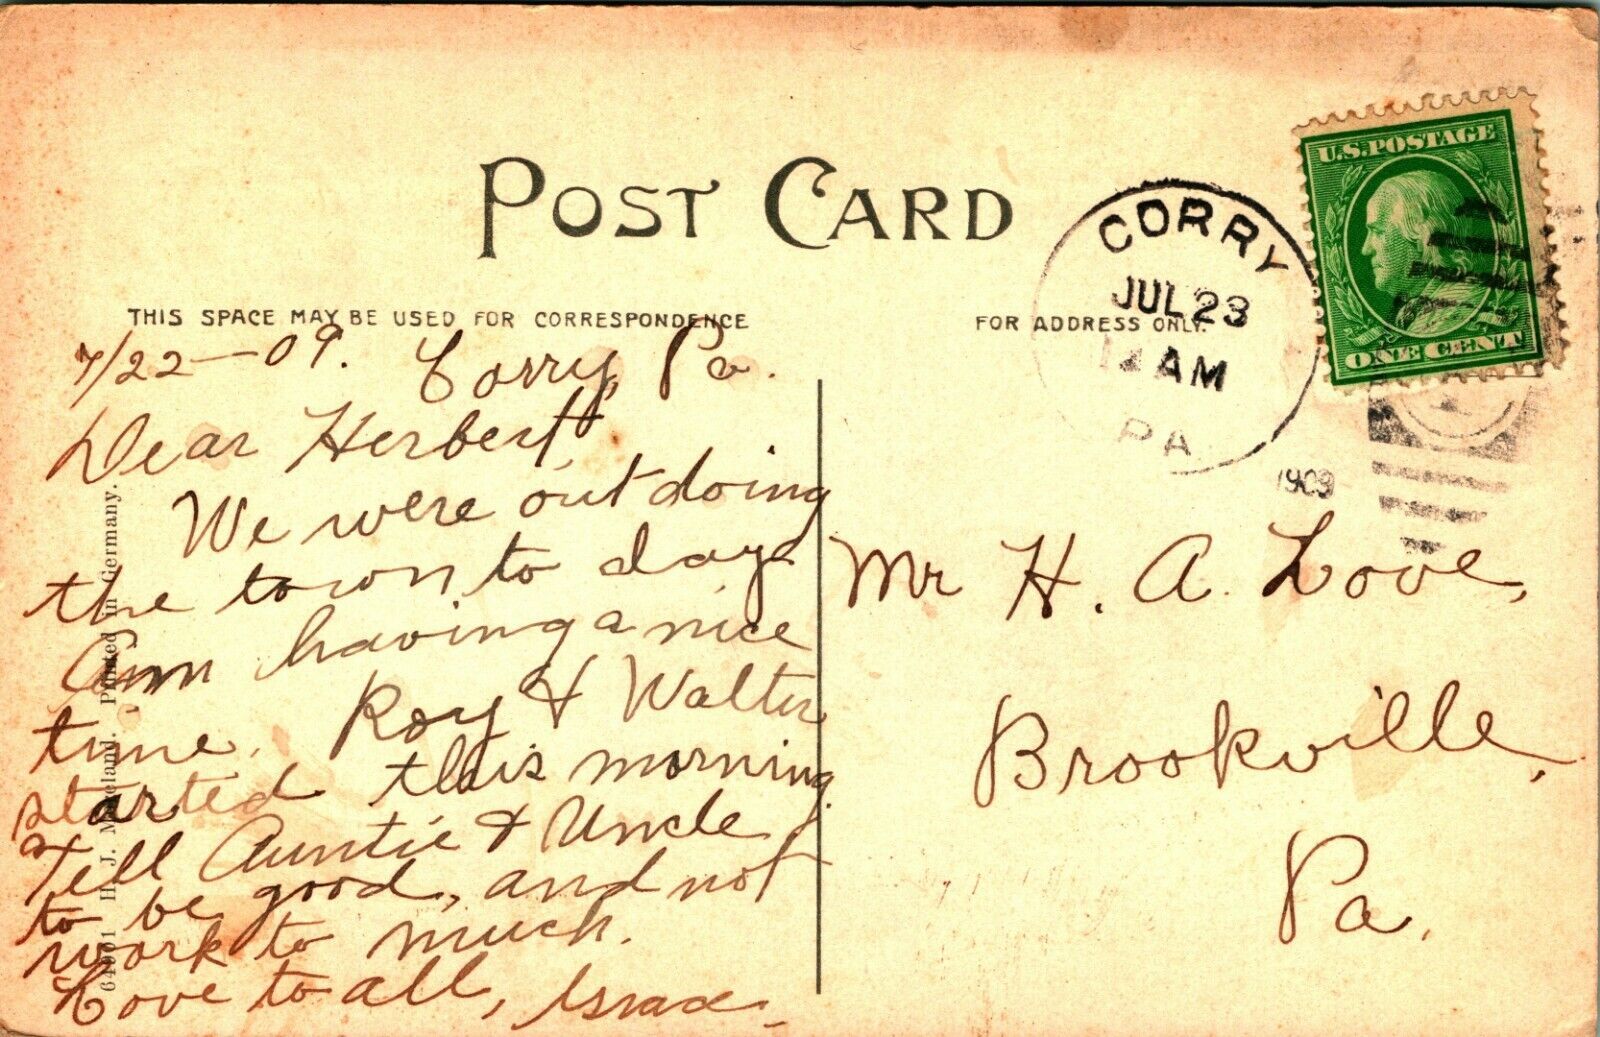 POST CARD
THIS SPACE MAY BE USED FOR CORRESPONDENCE
FOR ADDRESS ONLY.
U.S. POSTAGE
ONE CENT
CORRY
JUL 23
AM
PA
1909
7/22—09. Corry, Pa.
Dear Herbert,
We were out doing
the town, to day.
Am having a nice
time. Roy & Walter
started this morning.
Tell Auntie & Uncle
to be good, and not
work to much.
Love to all,
Mr H. A. Love,
Brookville,
Pa.
64001 H. J. Printed in Germany.